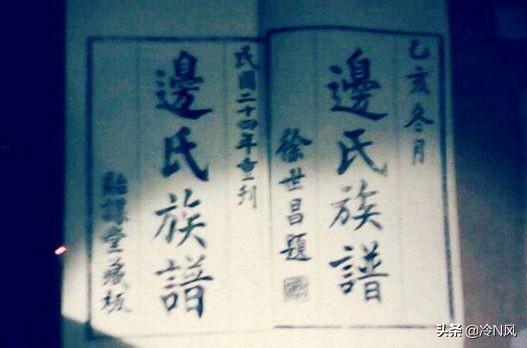 乙亥冬月
邊氏族譜
徐世昌題
民國二十四年重刊
邊氏族譜
貽謀堂藏板
头条 @冷N风